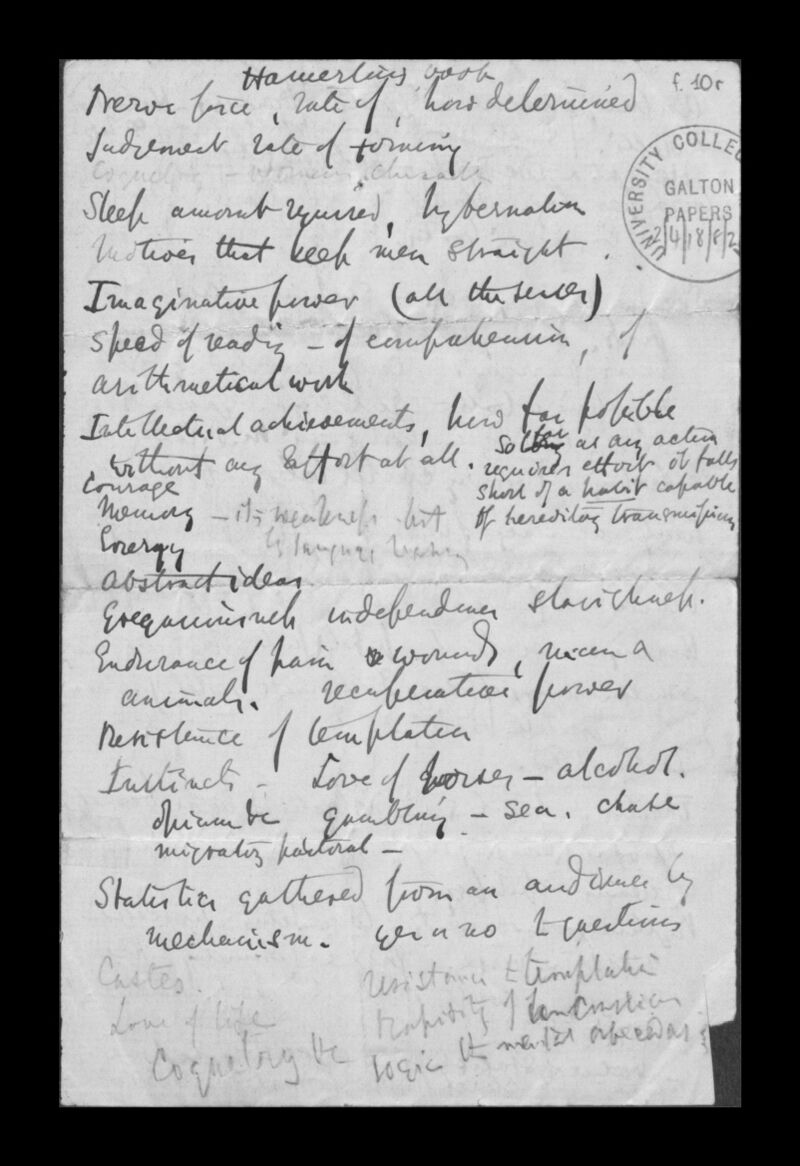 Hamerton's book
f. 10r
Nerve force, rate of, how determined
Judgement rate of forming
Coquetry – women's
UNIVERSITY COLLEGE
GALTON
PAPERS
2/4/18/8/2
Sleep amount required, hybernation
Motives that keep men straight.
Imaginative power (all the senses)
Speed of reading – of comprehension, of
arithmetical work
Intellectual achievements, how far possible
without any Effort at all.
So far as any action
requires effort it falls
short of a habit capable
of hereditary transmission
Courage
Memory – its weakness but
Energy
Abstract ideas
Gregariousness independence slavishness.
Endurance of pain & wounds, men and
animals. recuperative power
Resistence of temptation
Instincts – Love of horses – alcohol.
opium &c gambling – sea. chase
migratory pastoral –
Statistics gathered from an audience by
mechanism. yes or no to questions
Castes.
resistance to temptation
Love of life
rapidity of
Coquetry &c
logic